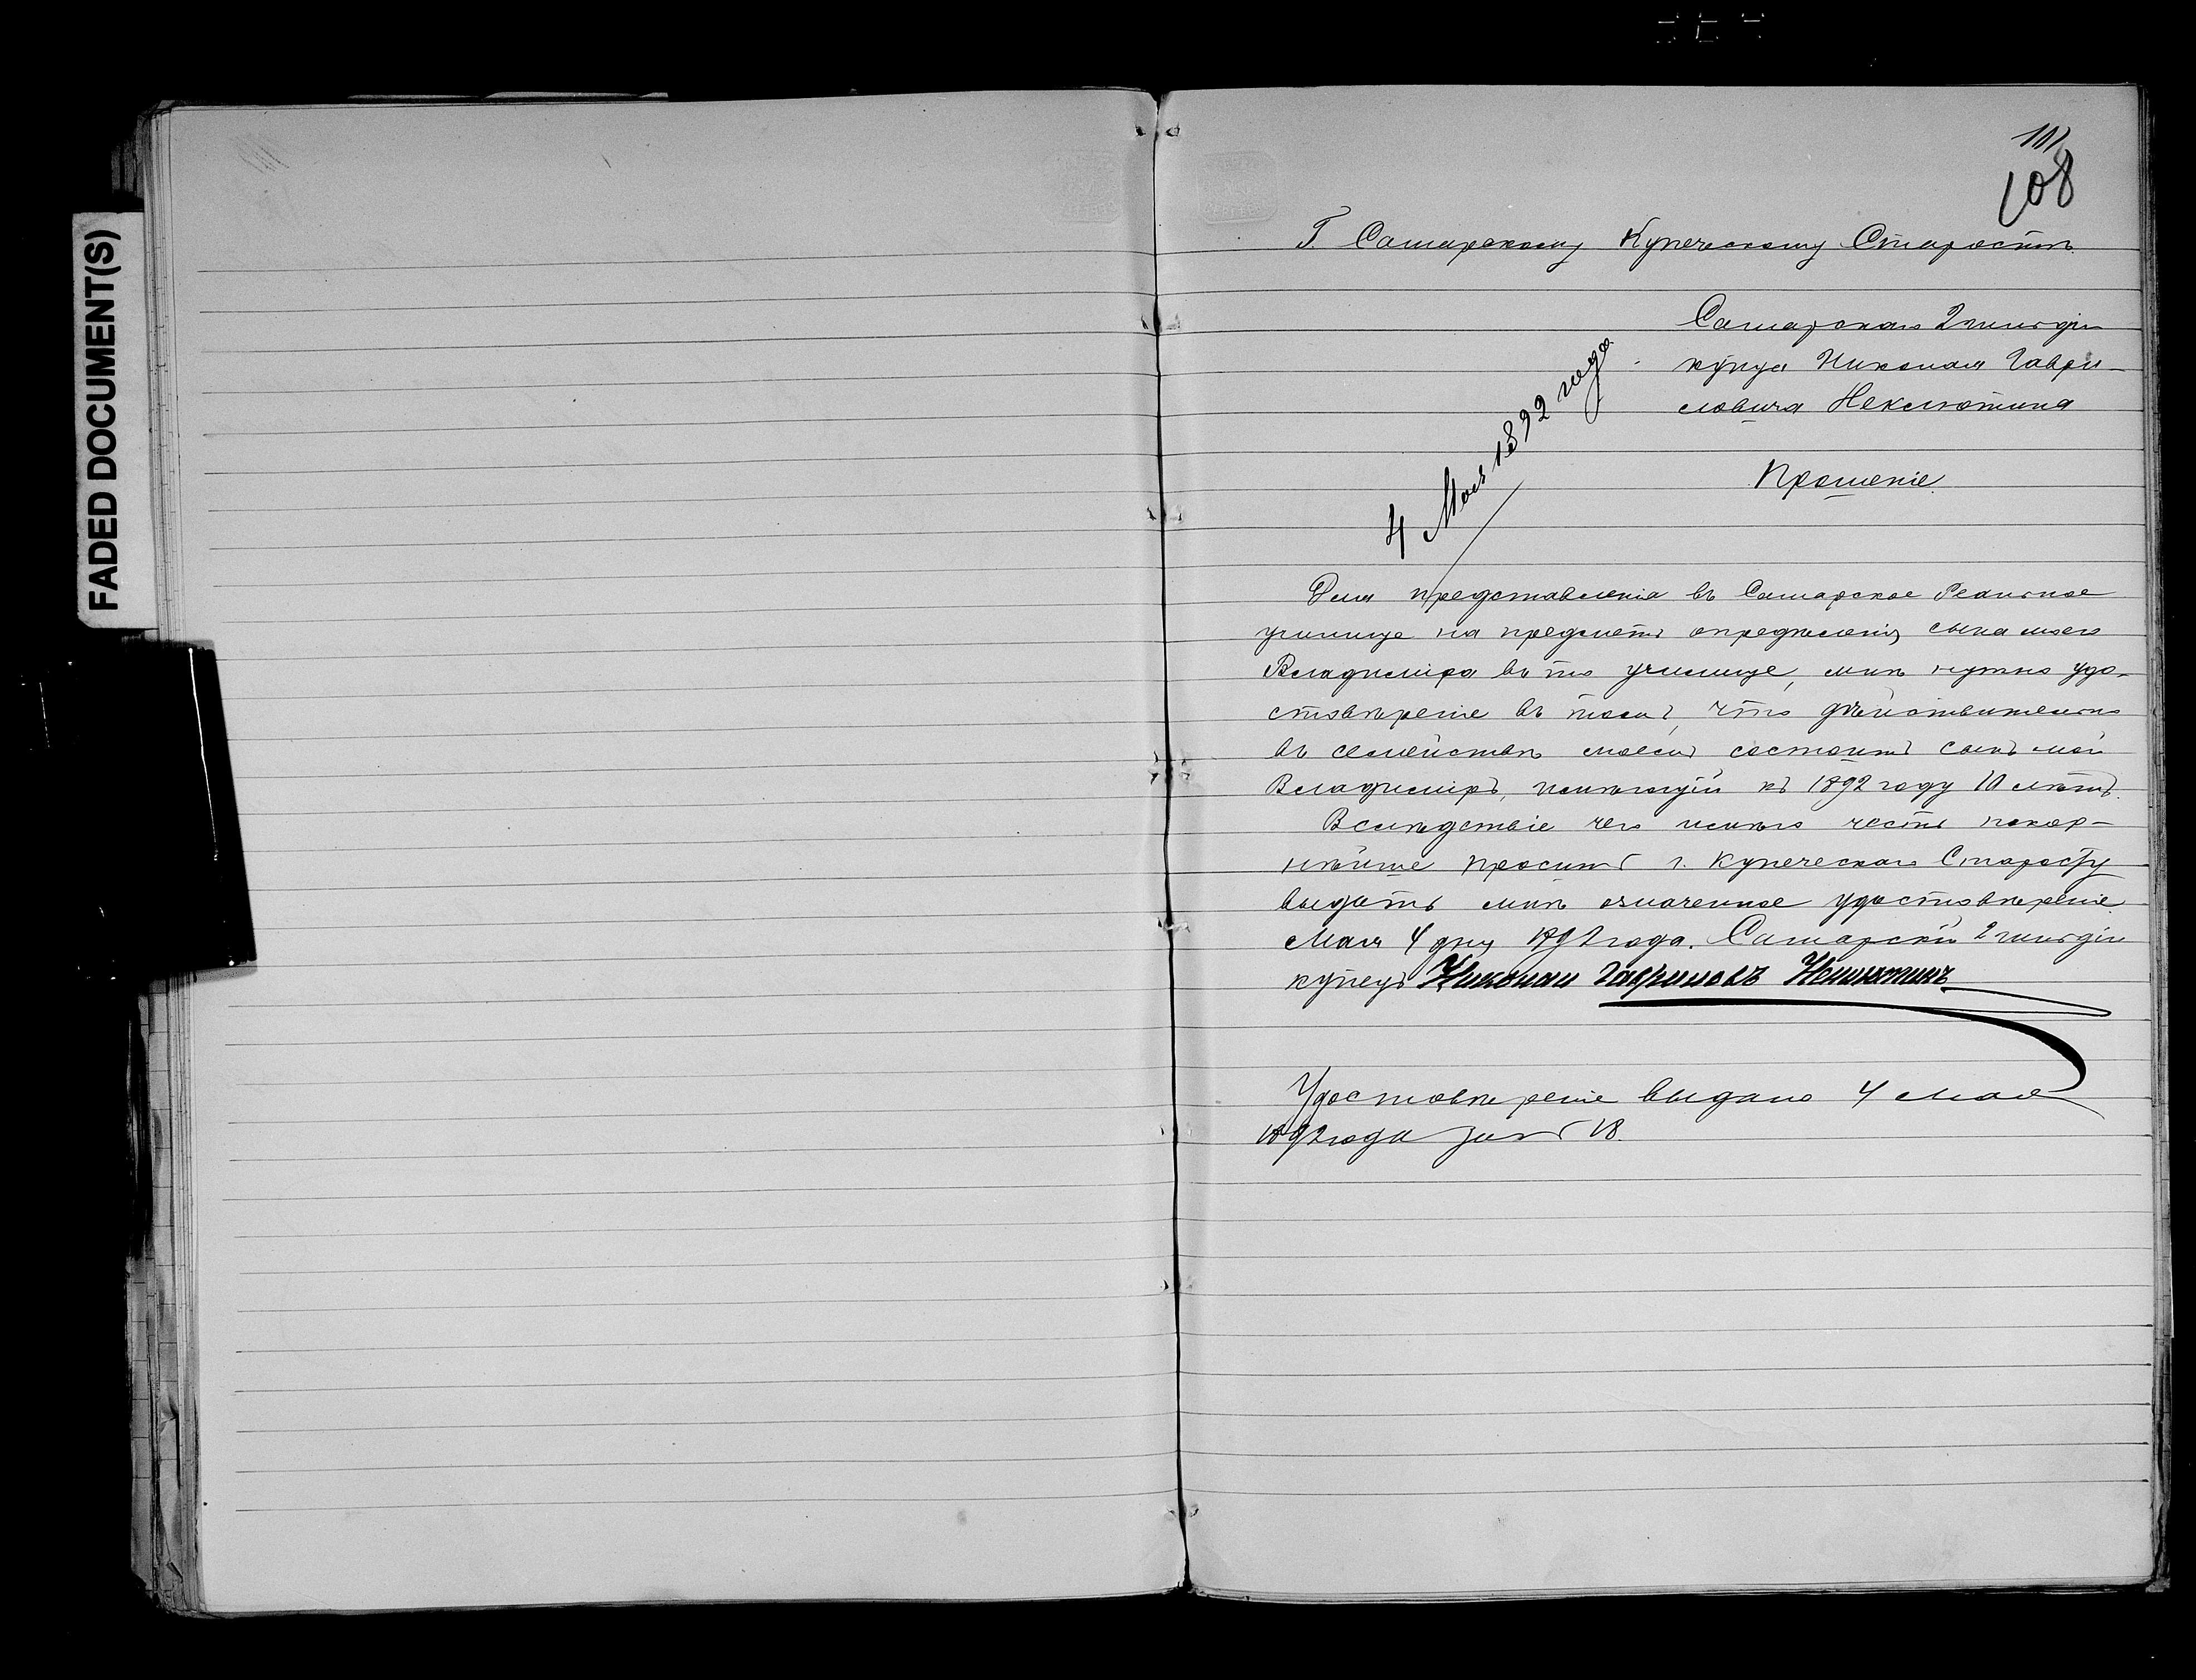 FADED DOCUMENT(S)
111
108
Г. Самарскому Купеческому Старостѣ.
Самарскаго 2 гильдіи
купца Николая Гаври-
ловича Неклютина
4 Мая 1892 года
Прошеніе.
Для представленія въ Самарское Реальное
училище на предметъ опредѣленія сына моего
Владиміра въ то училище, мнѣ нужно удо-
стовѣреніе въ томъ, что дѣйствительно
въ семействѣ моемъ состоитъ сынъ мой
Владиміръ, имѣющій къ 1892 году 10 лѣтъ.
Вслѣдствіе чего имѣю честь покор-
нѣйше просить г. Купеческаго Старосту
выдать мнѣ означенное удостовѣреніе.
Мая 4 дня 1892 года. Самарскій 2 гильдіи
купецъ Николай Гавриловъ Неклютинъ
Удостовѣреніе выдано 4 мая
1892 года за № 18.